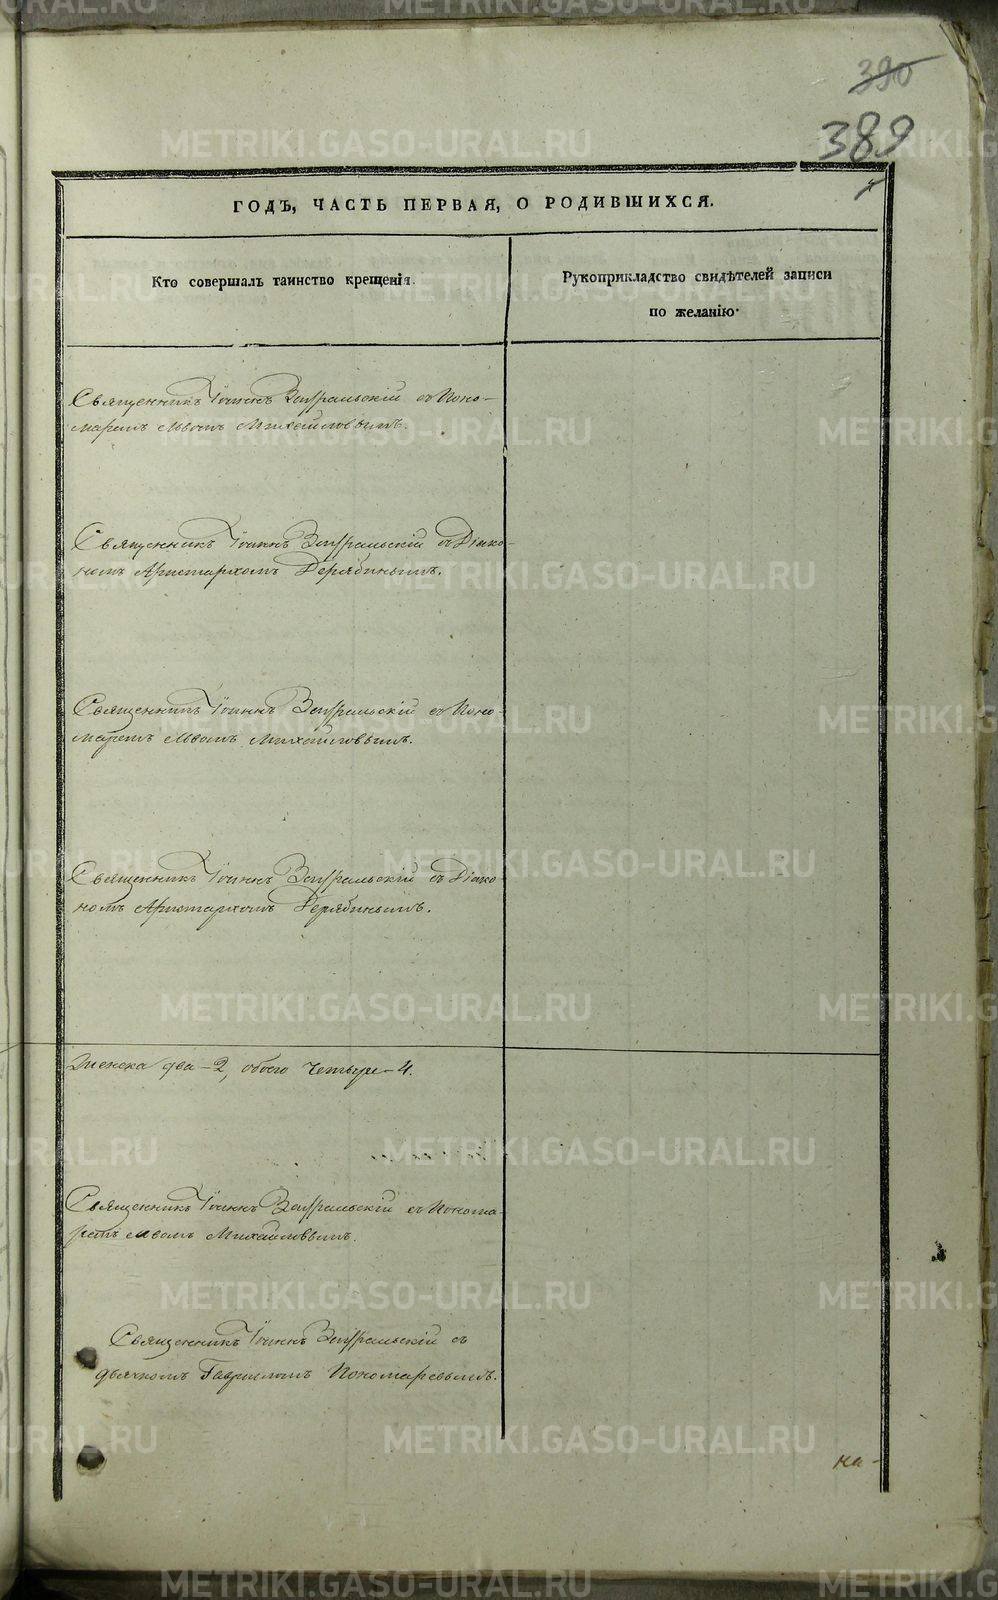 390
389
ГОДЪ, ЧАСТЬ ПЕРВАЯ, О РОДИВШИХСЯ.
Кто совершалъ таинство крещенія.
Рукоприкладство свидѣтелей записи
по желанію.
Священникъ Іоаннъ Зауральскій съ Поно-
маремъ Львомъ Михайловымъ.
Священникъ Іоаннъ Зауральскій съ Діако-
номъ Аристархомъ Дерябинымъ.
Священникъ Іоаннъ Зауральскій съ Поно-
маремъ Львомъ Михайловымъ.
Священникъ Іоаннъ Зауральскій съ Діако
номъ Аристархомъ Дерябинымъ.
Женска два - 2, обоего четыре - 4.
Священникъ Іоаннъ Зауральскій съ Понома-
ремъ Львомъ Михайловымъ.
Священникъ Іоаннъ Зауральскій съ
дьячкомъ Гавріиломъ Пономаревымъ.
на -
METRIKI.GASO-URAL.RU